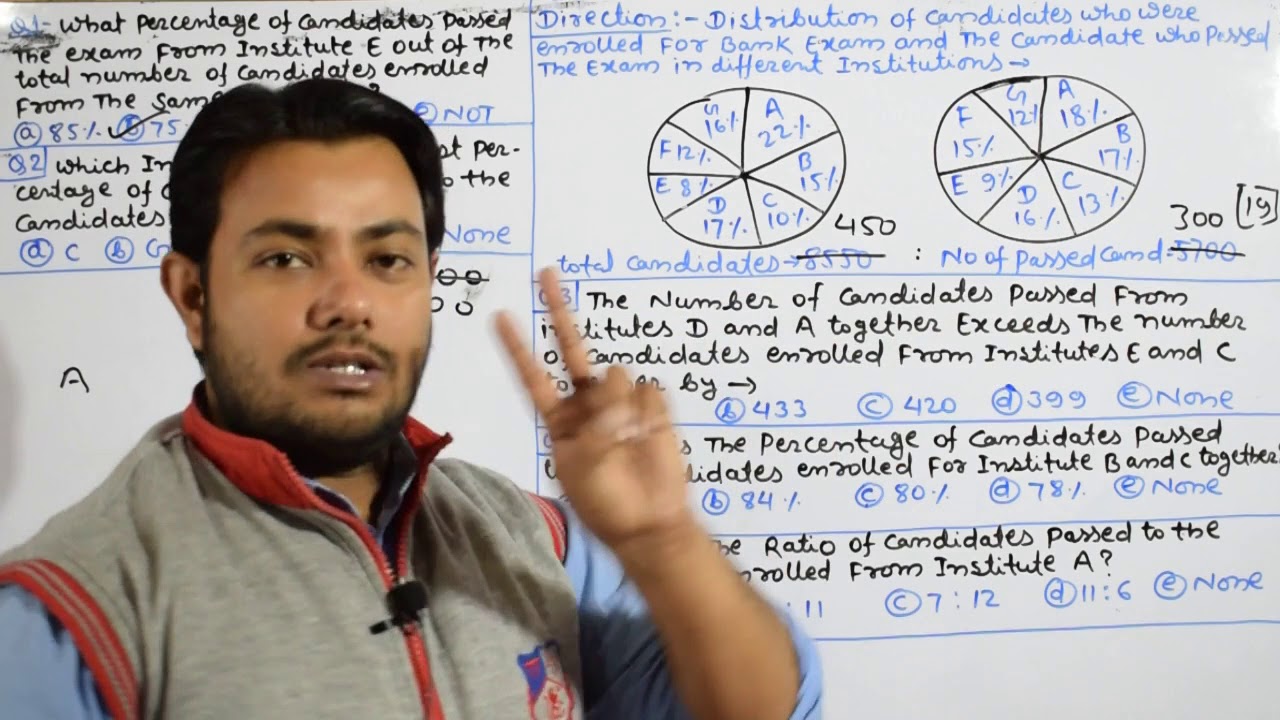 Q1- What Percentage of Candidates Passed
The exam From Institute E out of The
total number of Candidates enrolled
From The Same ?
ⓐ 85% ⓑ 75 ⓔ NOT
Q2 which In st Per-
centage of o the
Candidates
ⓐ C ⓑ G None
00
00
A
Direction:- Distribution of Candidates who were
enrolled For Bank Exam and The Candidate who Passed
The Exam in different Institutions →
G 16% A 22%
F 12% B 15%
E 8% C 10%
D 17%
450
total Candidates → 8550
G 12% A 18%
F 15% B 17%
E 9% C 13%
D 16%
300 [19]
: No of Passed Cand = 5700
Q3 The Number of Candidates Passed From
institutes D and A together Exceeds The number
of Candidates enrolled From Institutes E and C
by →
ⓑ 433 ⓒ 420 ⓓ 399 ⓔ None
s The Percentage of Candidates Passed
didates enrolled For Institute B and C together?
ⓑ 84% ⓒ 80% ⓓ 78% ⓔ None
he Ratio of Candidates Passed to the
rolled From Institute A?
: 11 ⓒ 7:12 ⓓ 11:6 ⓔ None